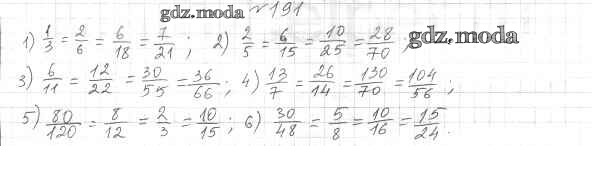 gdz.moda № 191
1) 1/3 = 2/6 = 6/18 = 7/21 ; 2) 2/5 = 6/15 = 10/25 = 28/70 ; gdz.moda
3) 6/11 = 12/22 = 30/55 = 36/66 ; 4) 13/7 = 26/14 = 130/70 = 104/56 ;
5) 80/120 = 8/12 = 2/3 = 10/15 ; 6) 30/48 = 5/8 = 10/16 = 15/24 .